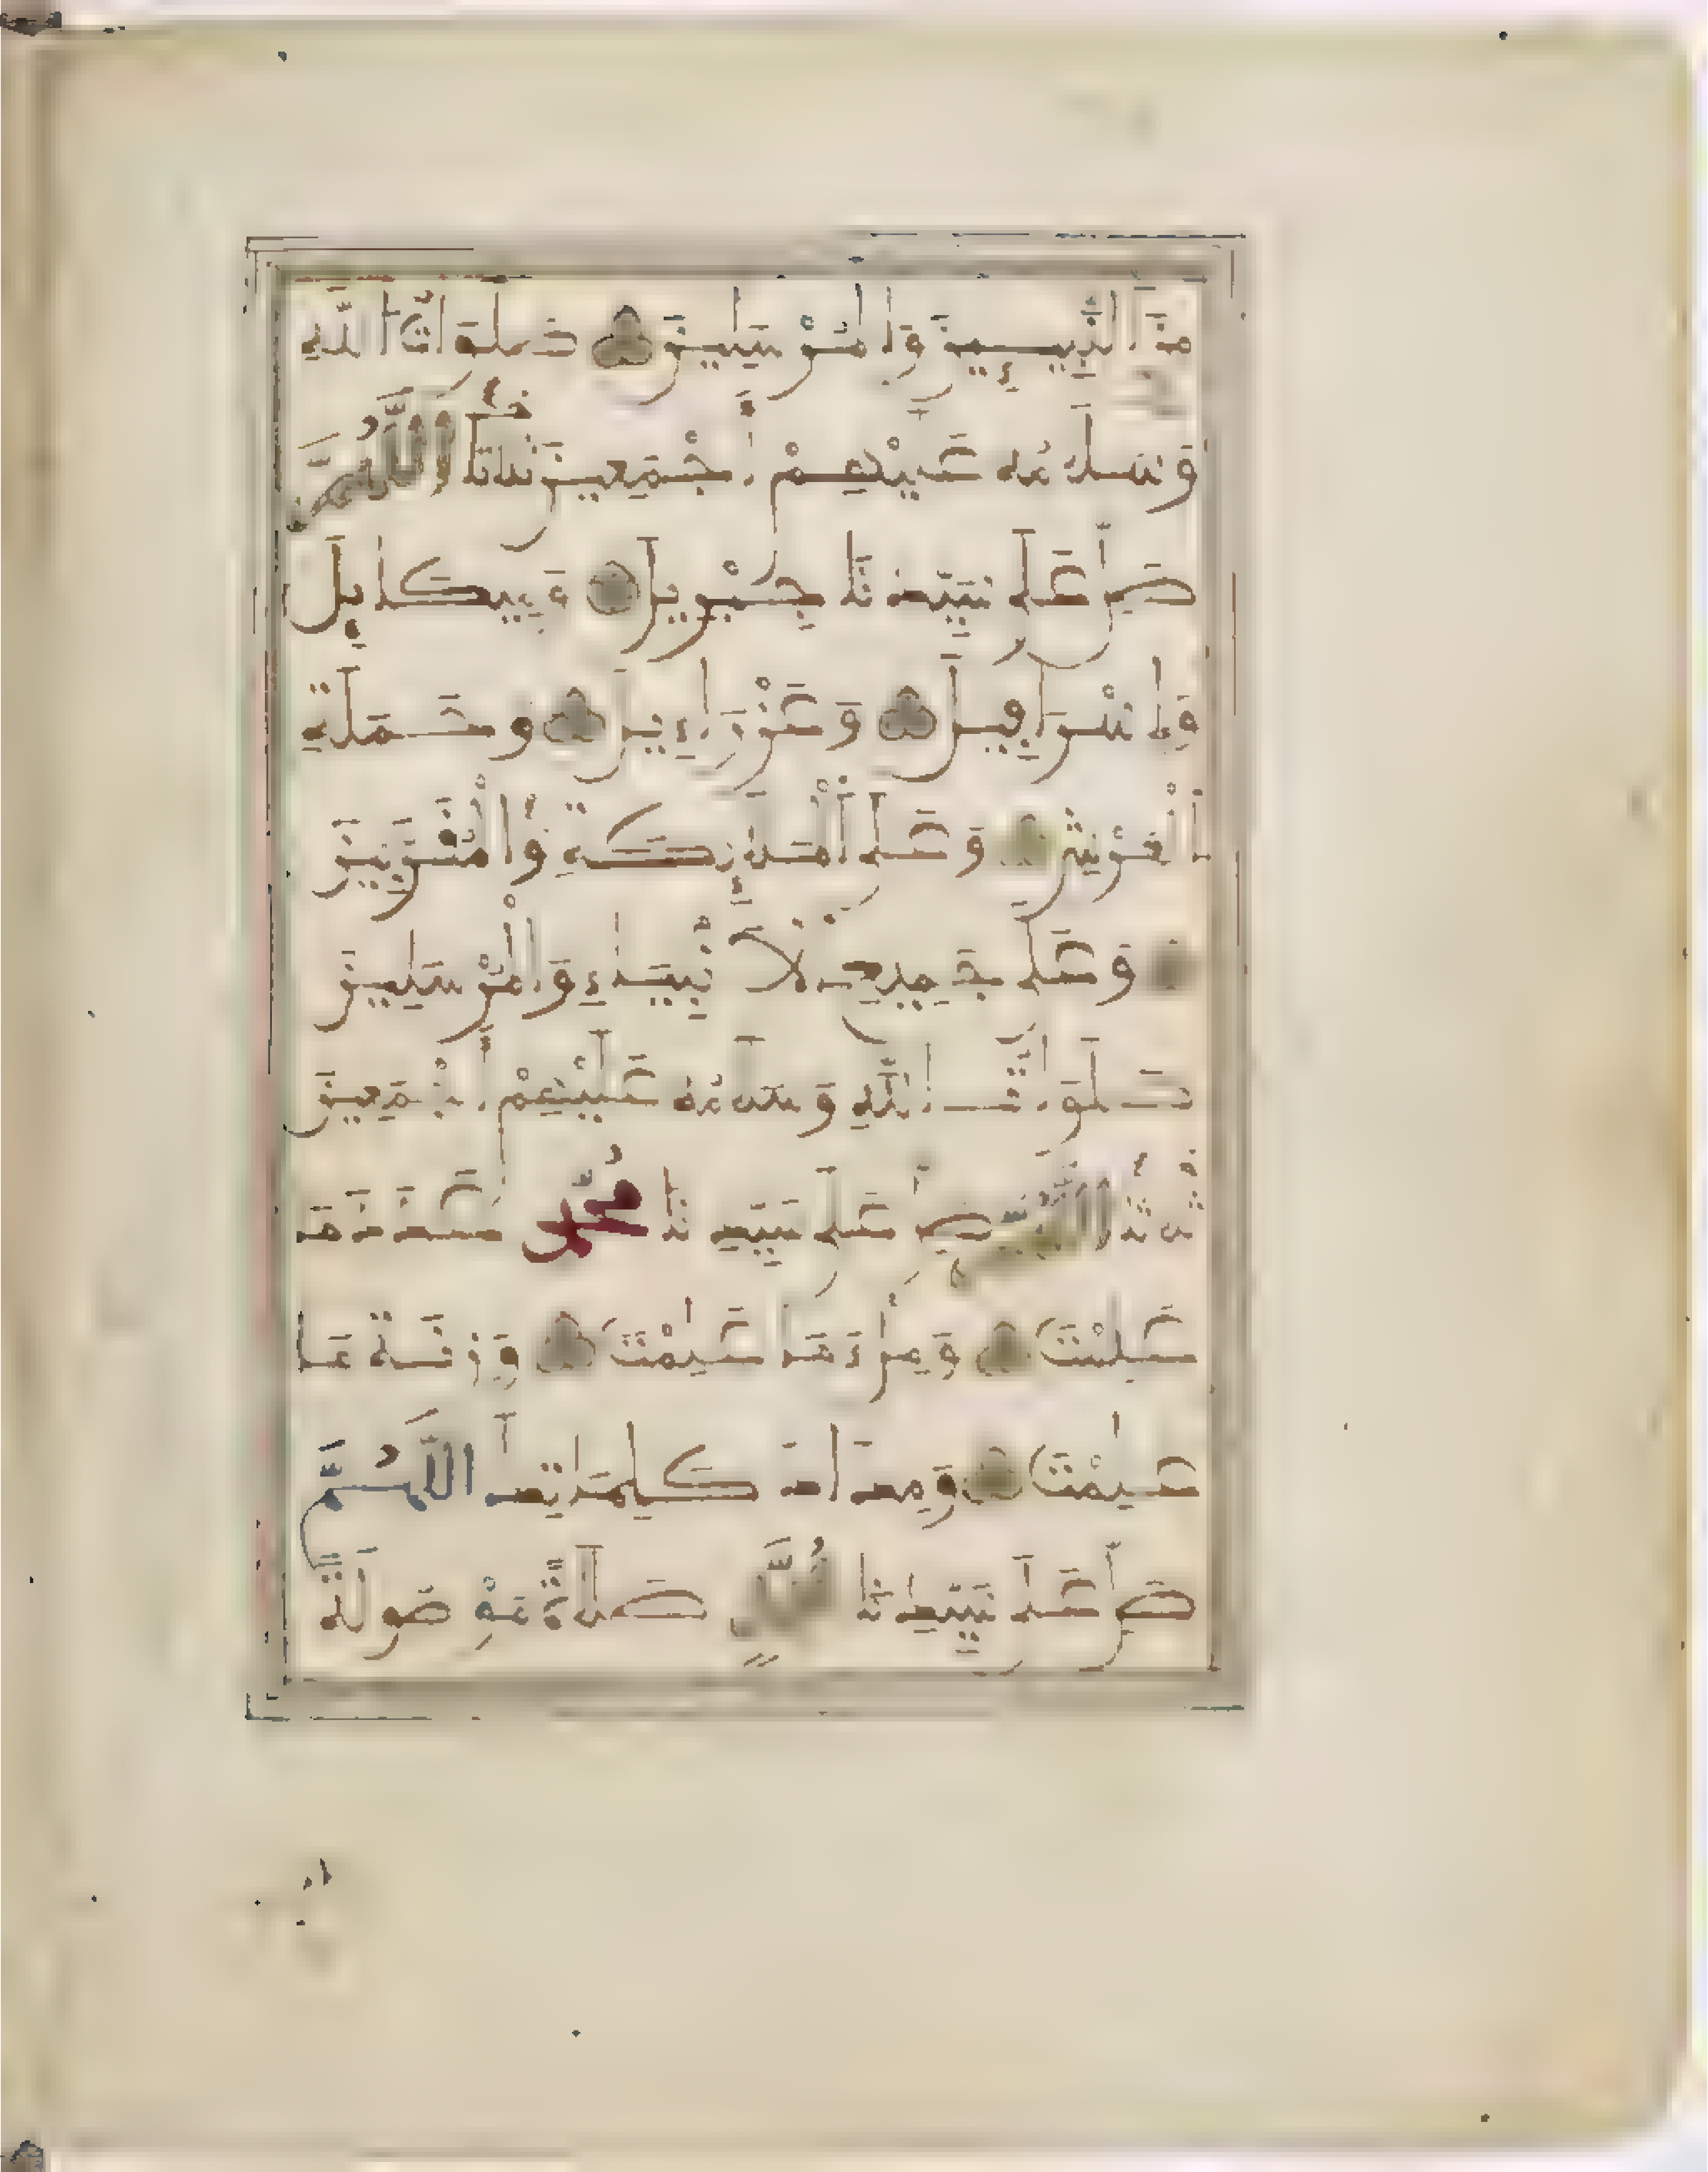 مِنَ النَّبِيـِٕينَ وَالْمُرْسَلِينَ صَلَوَاتُ اللَّهِ
وَسَلَامُهُ عَلَيْهِمْ أَجْمَعِينَ ثَلَاثًا اللَّهُمَّ
صَلِّ عَلَى نَبِيِّنَا جِبْرِيلَ وَمِيكَائِلَ
وَإِسْرَافِيلَ وَعَزْرَاءِيلَ وَحَمَلَةِ
الْعَرْشِ وَعَلَى الْمَلَائِكَةِ وَالْمُقَرَّبِينَ
وَعَلَى جَمِيعِ الْأَنْبِيَاءِ وَالْمُرْسَلِينَ
صَلَوَاتُ اللَّهِ وَسَلَامُهُ عَلَيْهِمْ أَجْمَعِينَ
ثَلَاثًا اللَّهُمَّ صَلِّ عَلَى نَبِيِّنَا مُحَمَّدٍ عَدَدَ مَا
عَلِمْتَ وَمِلْءَ مَا عَلِمْتَ وَزِنَةَ مَا
عَلِمْتَ وَمِدَادَ كَلِمَاتِكَ اللَّهُمَّ
صَلِّ عَلَى نَبِيِّنَا مُحَمَّدٍ صَلَاةً مَوْصُولَةً